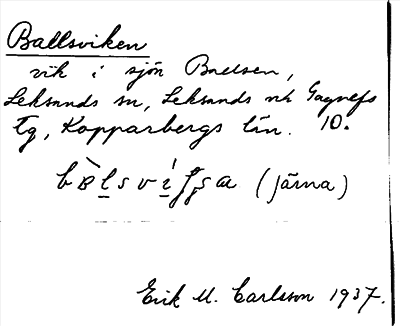 Ballsviken
vik i sjön Balisen,
Leksands sn, Leksands och Gagnefs
tg, Kopparbergs län. 10.
(Järna)
Erik M. Carlsson 1937.